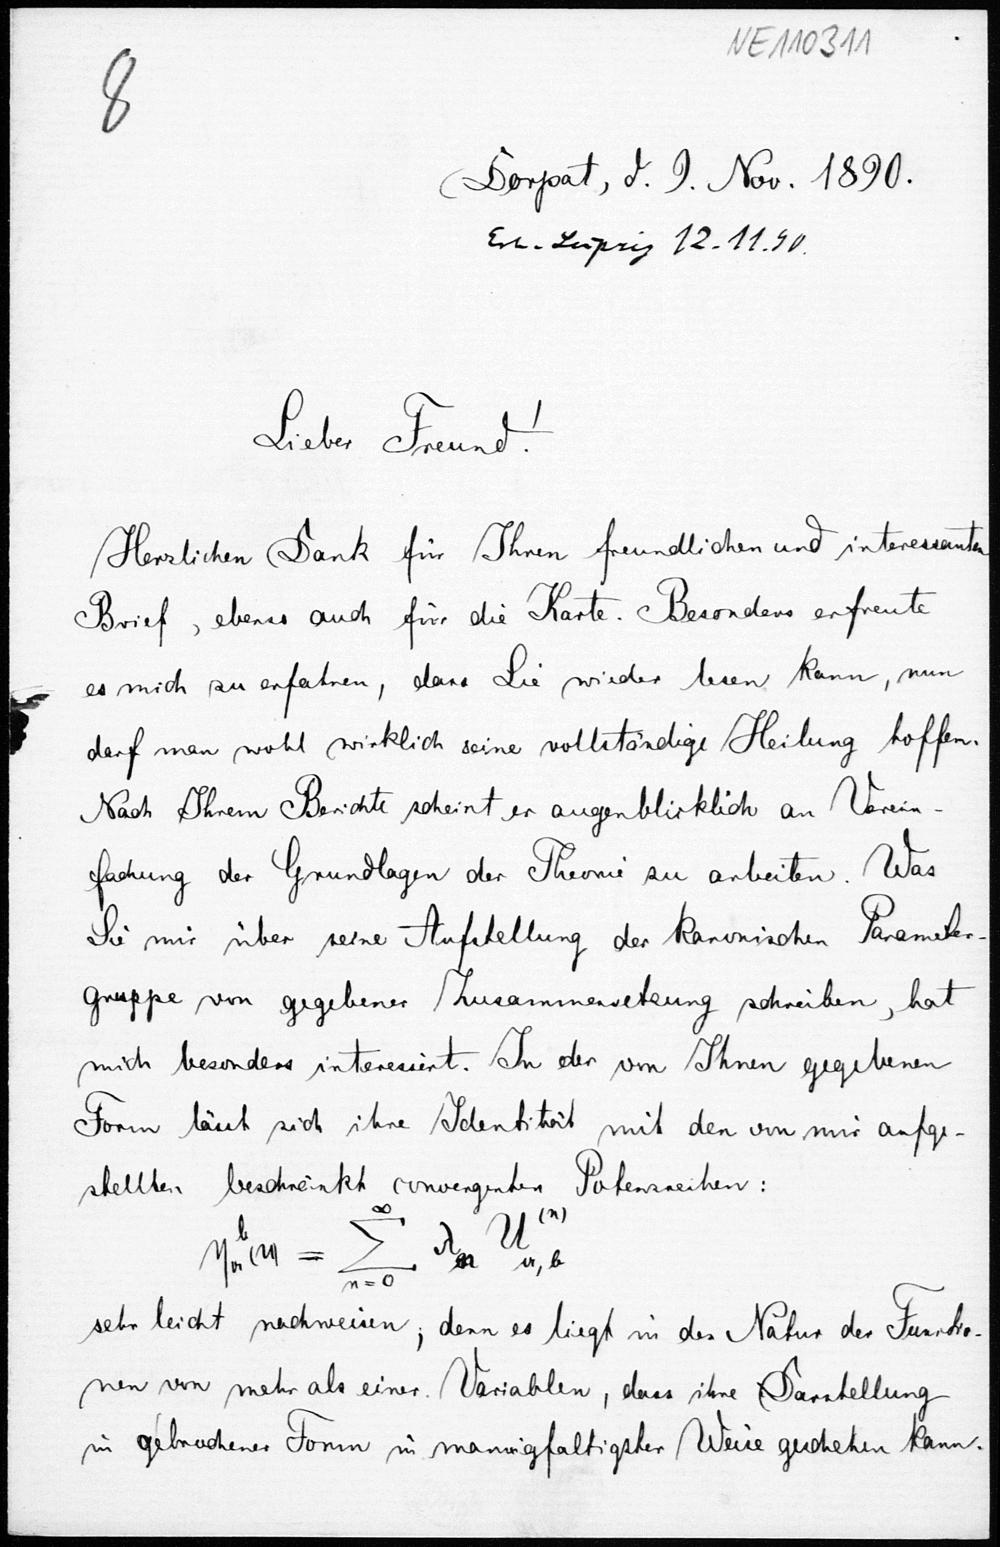 NE110311
8
Dorpat, d. 9. Nov. 1890.
Erh. Leipzig 12.11.90.
Lieber Freund!
Herzlichen Dank für Ihren freundlichen und interessanten
Brief, ebenso auch für die Karte. Besonders erfreute
es mich zu erfahren, dass Lie wieder lesen kann, nun
darf man wohl wirklich seine vollständige Heilung hoffen.
Nach Ihrem Berichte scheint er augenblicklich an Verein-
fachung der Grundlagen der Theorie zu arbeiten. Was
Sie mir über seine Aufstellung der kanonischen Parameter-
gruppe von gegebener Zusammensetzung schreiben, hat
mich besonders interessirt. In der von Ihnen gegebenen
Form lässt sich ihre Identität mit den von mir aufge-
stellten beschränkt convergenten Potenzreihen:
η_a^b(u) = ∑_{n=0}^∞ λ_n U_{a,b}^{(n)}
sehr leicht nachweisen; denn es liegt in der Natur der Functio-
nen von mehr als einer Variablen, dass ihre Darstellung
in gebrochener Form in mannigfaltigster Weise geschehen kann.